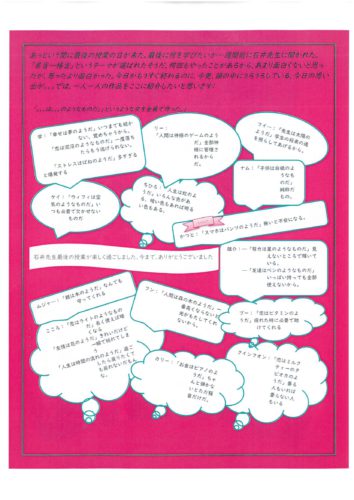 あっという間に最後の授業の日が来た。最後に何を学びたいか一週間前に石井先生に聞かれた。
「名言一極主」というテーマが選ばれたそうだ。何回もやったことがあるから、あまり面白くないと思っ
たが、思ったより面白かった。今日からもうすぐ終わるのに、今更、頭の中にうろうろしている、今日の思い
出が。。。では、一人一人の作品をここに紹介したいと思います！
「。。。は。。。のようなものだ」というような文を全員で作った。
「幸せは夢のようだ」いつまでも続か
ない。覚めちゃうから。
「恋は泥沼のようなものだ」一度落ち
たらもう逃げられない。
「ストレスはばねのようだ」多すぎる
と爆発する
リー：
「人間は将棋のゲームのよ
うだ」全部神
様に管理さ
れるから
だ。
フイー：「先生は太陽の
ようだ」学生の将来の道
を照らしてあげるから。
ヤム：「子供は白紙のよ
うなもの
だ」
純粋だ
もの。
ケイ：「ウィフィは空
気のようなものだ」い
つも必要で欠かせない
ものだ
ちひろ：「人生は虹のよ
うだ」いろんな色があ
る。暗い色もあれば明る
い色もある。
かつと：「スマホはパンツのようだ」無いと不安になる。
石井先生最後の授業が楽しく過ごしました、今までありがとうございました
「母性は星のようなものだ」見
えないところで輝いて
いる。
「友達はペンのようなものだ」
いっぱい持っても全部
使えないから。
ムジャー：「親は木のようだ」なんでも
守ってくれる
フン：「人間は森の木のようだ」一
番高くならないと
光がもらしてくれ
ないから。
ブー：「恋はビタミンのよ
うだ」疲れた時に必要で助
けてくれる
こころ：「恋はライトのようなもの
だ」長く使えば暗
くなる
「友情は花のようだ」きれいだけど
一瞬で枯れてしま
う
「人生は時間の流れのようだ」過ご
したら戻りたくて
も戻れないから
カリー：「お金はピアノのよ
うだ」ちゃ
んと弾かな
いとただ雑
音だけだ。
クインフオン：「恋はミルク
ティーのタ
ピオカのよ
うだ」ある
人もいれば
要らない人
もいる